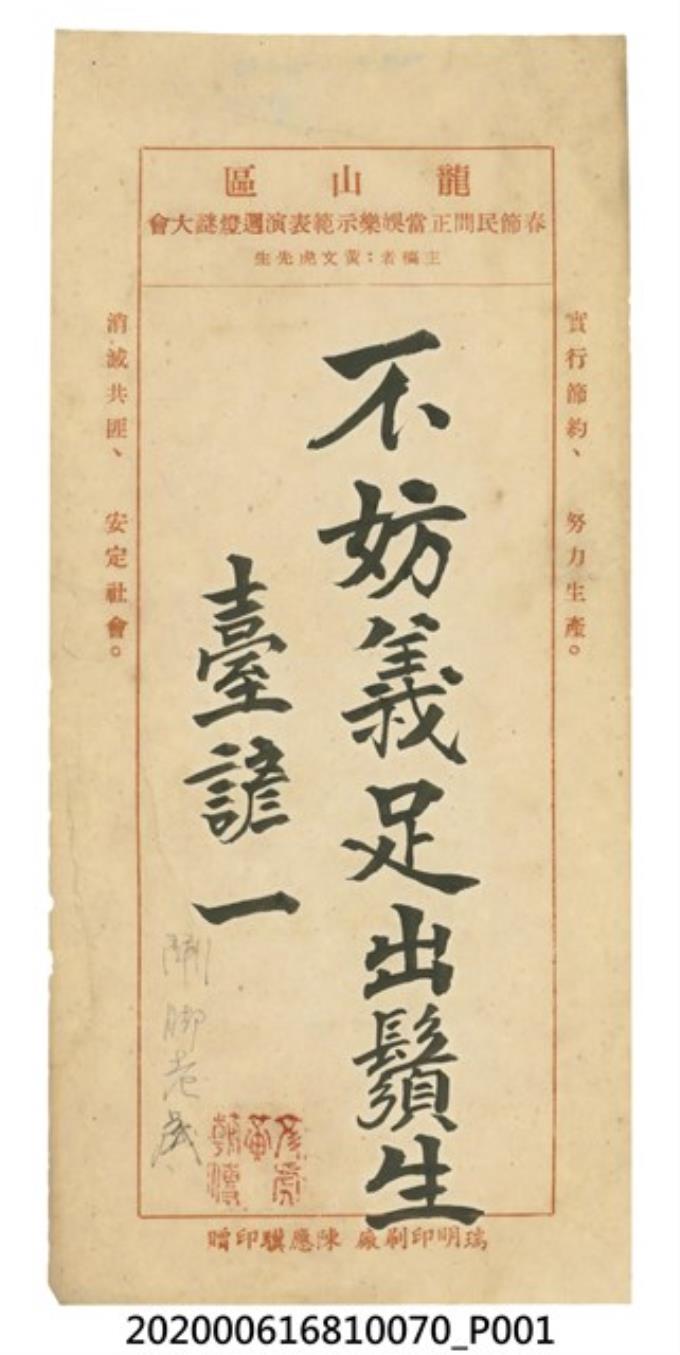 龍山區
春節民間正當娛樂示範表演選燈謎大會
主稿者：黃文虎先生
實行節約、努力生產。
不妨義足出鬚生
臺諺一
消滅共匪、安定社會。
瑞明印刷廠 陳應騏印贈
202000616810070_P001